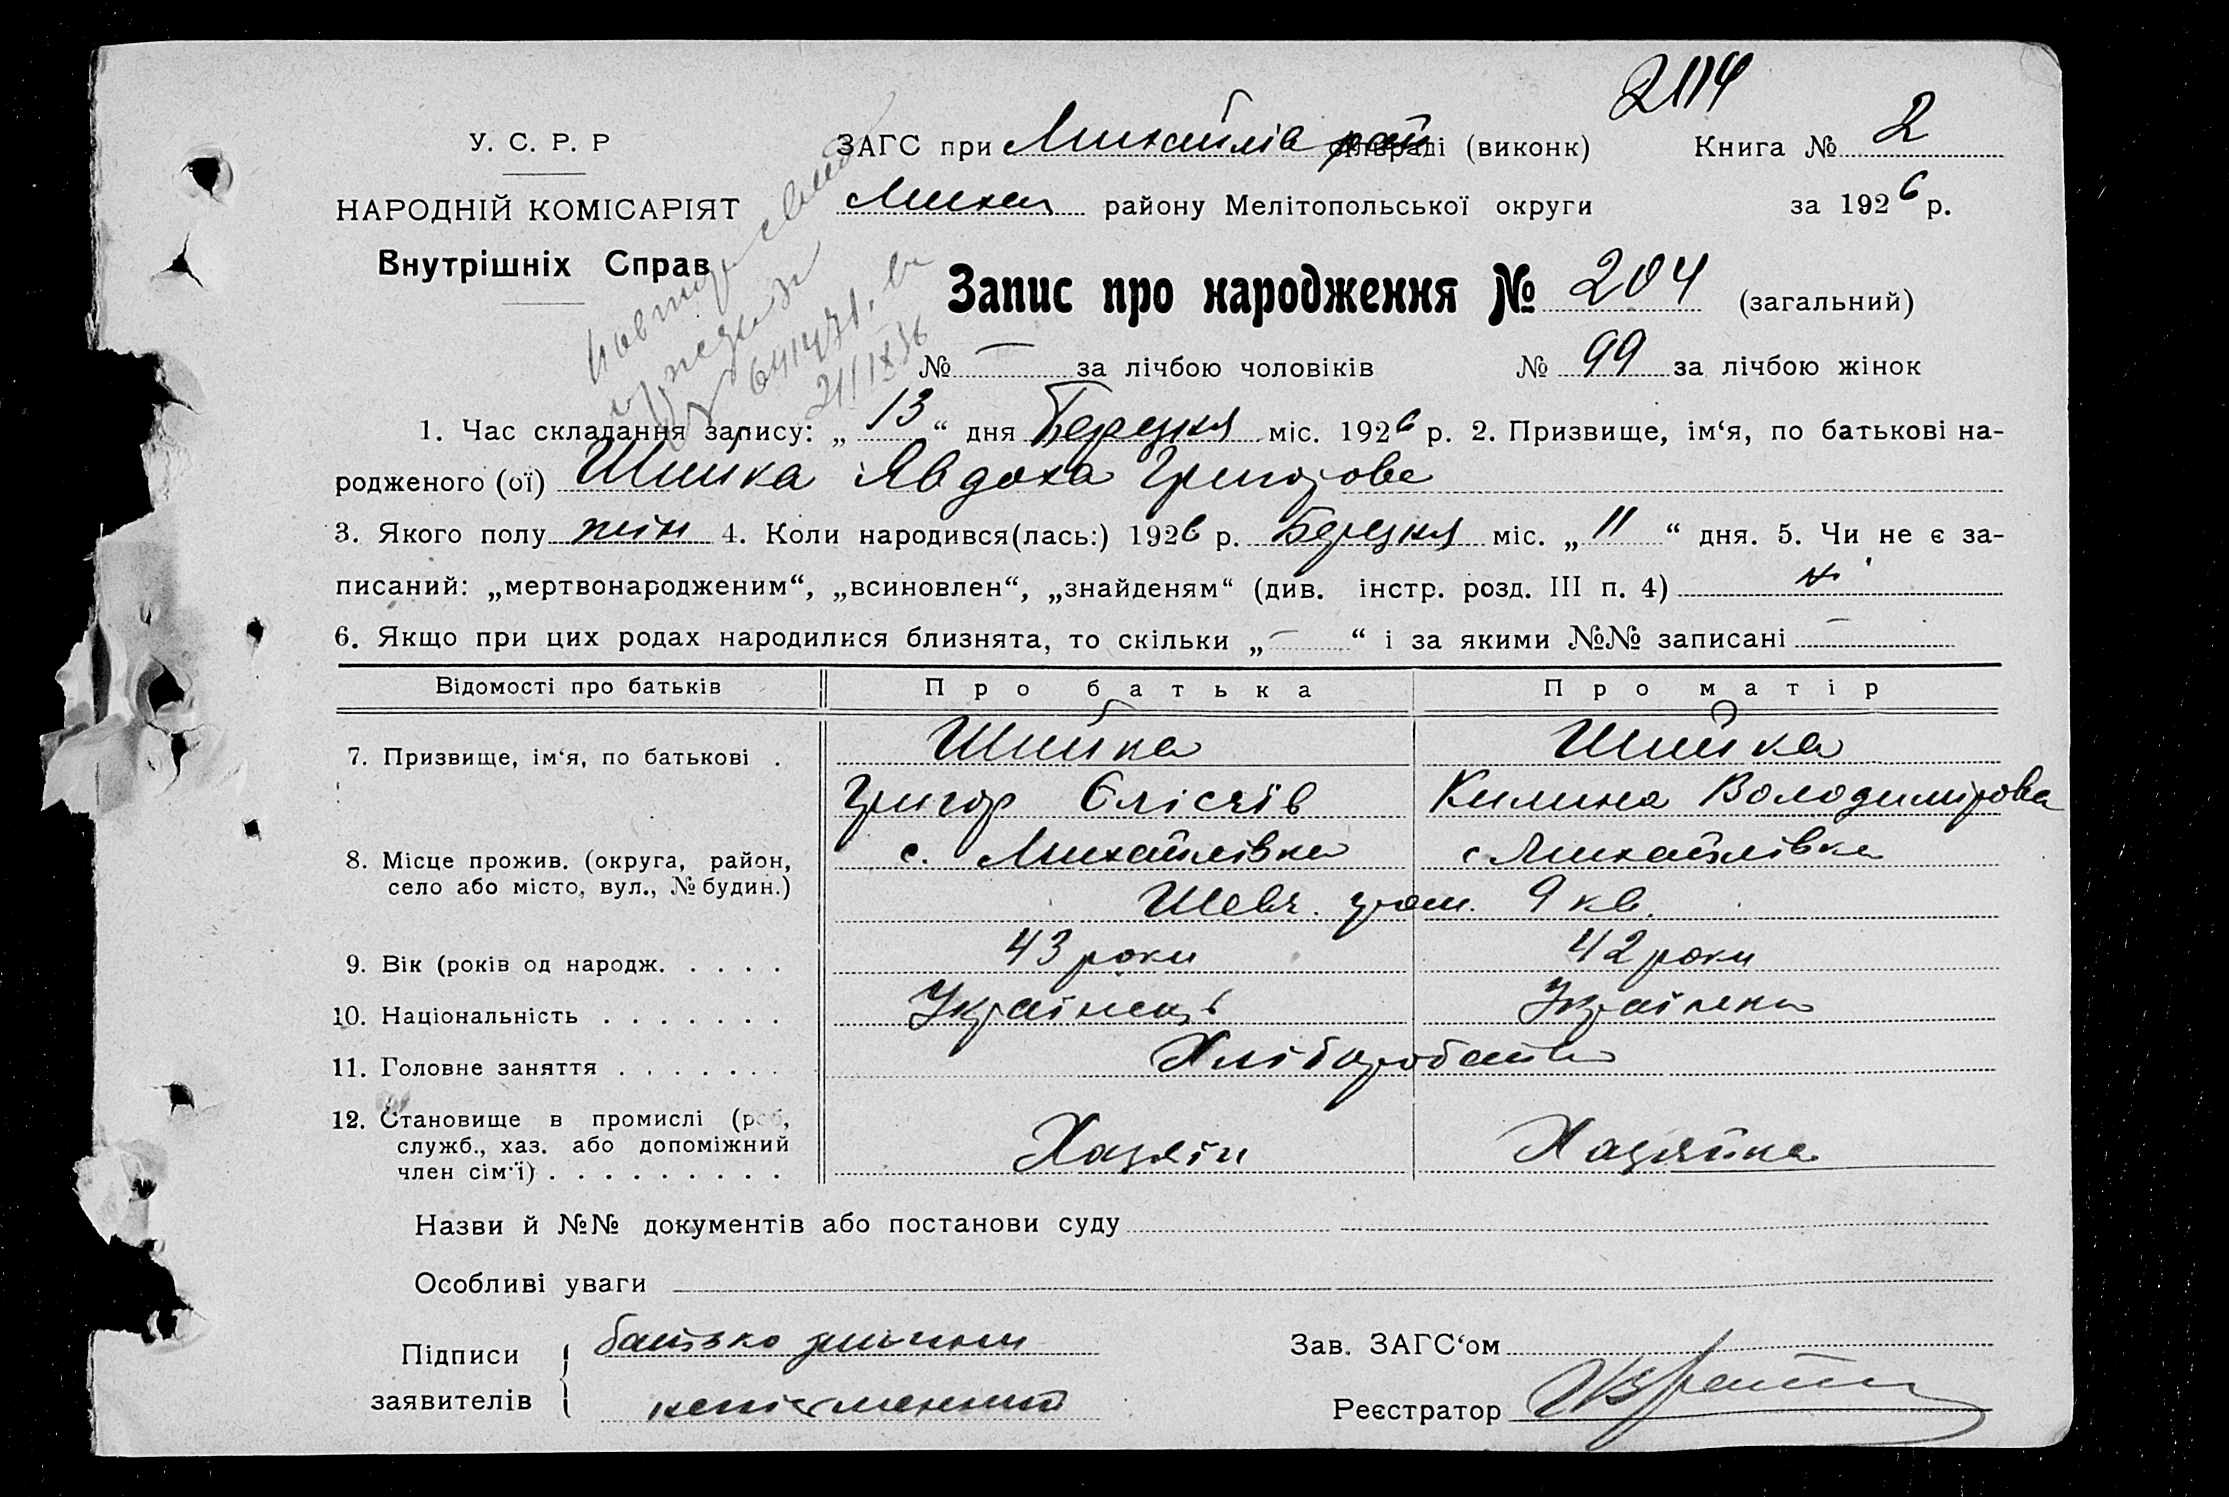 2114
У. С. Р. Р
ЗАГС при Михайлів рай сільраді (виконк) Книга № 2
НАРОДНІЙ КОМІСАРІЯТ
Михай району Мелітопольської округи за 1926 р.
Внутрішніх Справ
Запис про народження № 204 (загальний)
№ — за лічбою чоловіків № 99 за лічбою жінок
1. Час складання запису: „ 13 “ дня Березня міс. 1926 р. 2. Призвище, ім‘я, по батькові на-
родженого (ої) Шийка Явдоха Григорова
3. Якого полу жін 4. Коли народився(лась:) 1926 р. Березня міс. „ 11 “ дня. 5. Чи не є за-
писаний: „мертвонародженим“, „всиновлен“, „знайденям“ (див. інстр. розд. III п. 4) ні
6. Якщо при цих родах народилися близнята, то скільки „ — “ і за якими №№ записані —
Відомості про батьків Про батька Про матір
7. Призвище, ім‘я, по батькові . Шийка Шийка
Григор Єлісєїв Килина Володимірова
8. Місце прожив. (округа, район, с. Михайлівка с Михайлівка
село або місто, вул., № будин.)
Шевч. гром. 9 кв.
9. Вік (років од народж. . . . . 43 роки 42 роки
10. Національність . . . . . . . Українець Українка
11. Головне заняття . . . . . . . Хліборобство
12. Становище в промислі (роб,
служб., хаз. або допоміжний
член сім‘ї) . . . . . . . . . Хазяїн Хазяйка
Назви й №№ документів або постанови суду
Особливі уваги
Підписи батько дитини Зав. ЗАГС‘ом
заявителів неписьменний Реєстратор